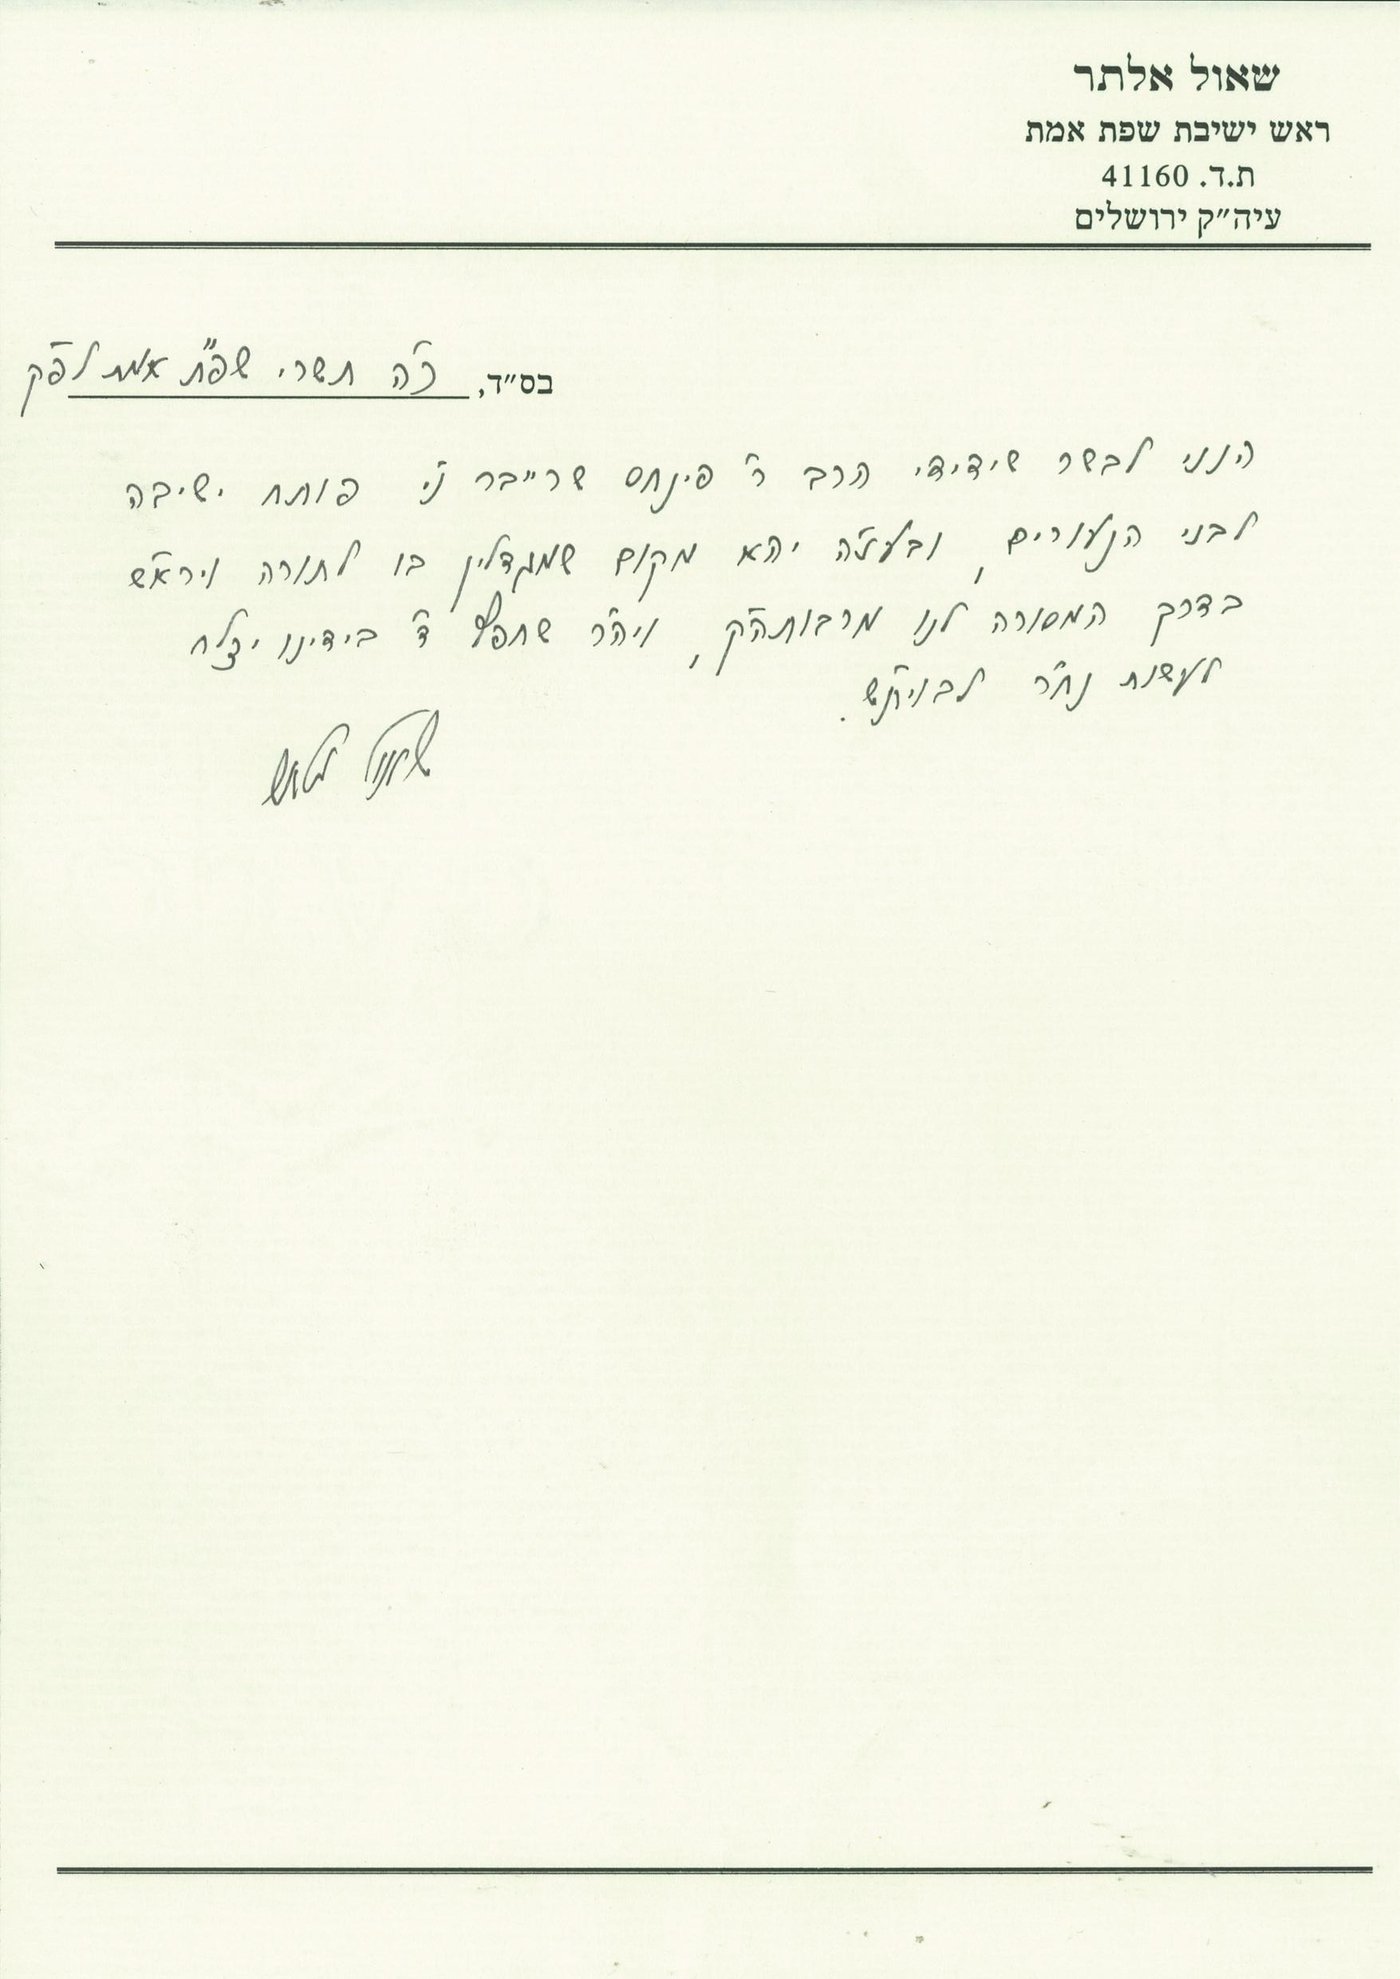 שאול אלתר
ראש ישיבת שפת אמת
ת.ד. 41160
עיה״ק ירושלים
בס״ד, כ״ה תשרי שפ״ת אמת לפ״ק
הנני לבשר שידידי הרב ר' פינחס שרייבר ני' פותח ישיבה
לבני הנעורים, ובעז״ה יהא מקום שמגדלין בו לתורה ויראש
בדרך המסורה לנו מרבוה״ק, ויה״ר שחפץ ד' בידינו יצלח
לעשות נח״ר לבוית״ש.
שאול